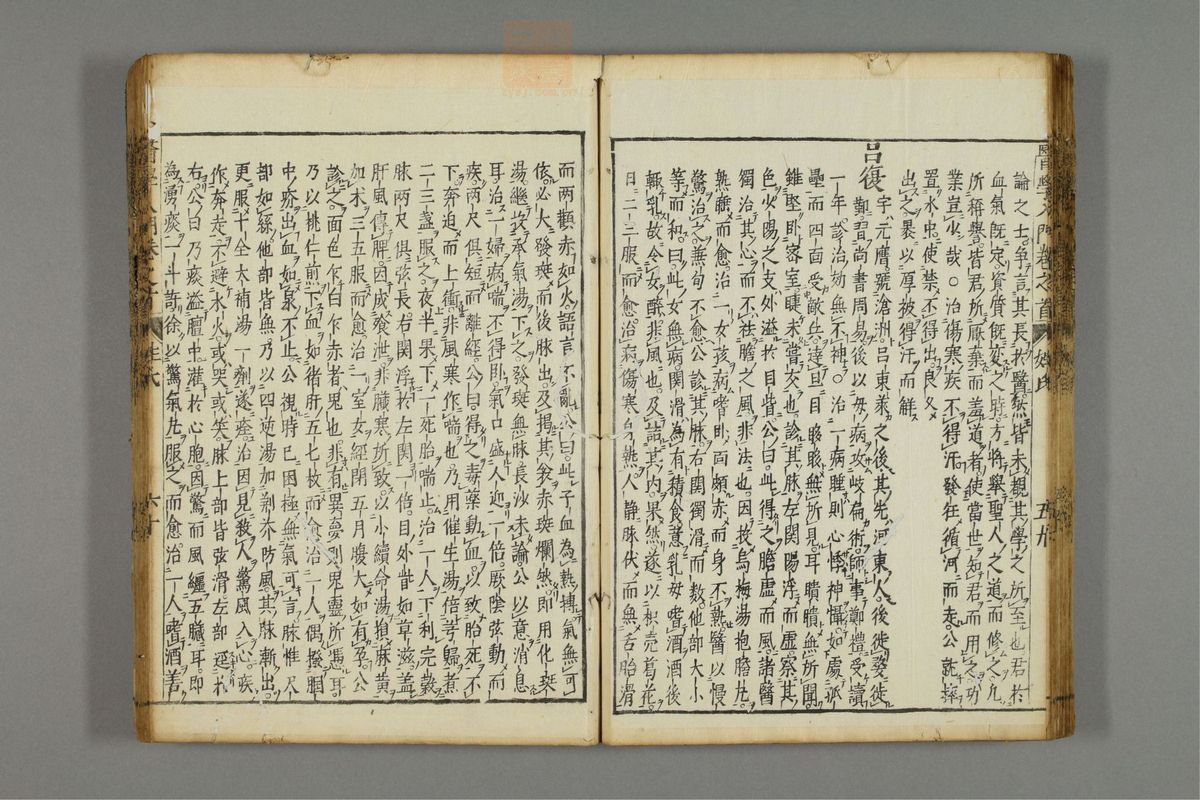 論之士爭言其長於醫然皆未覩其學之所至也君於
血氣既定資質既變之時方將舉聖人之道而修之凡
所稱譽皆君所厭棄而羞道者使當世知君而用之功
業豈少哉○治傷寒疾不得汗發狂循河而走公就摔
置水中使禁不得出良久
出之裹以厚被得汗而解
呂復
字元膺號滄洲呂東萊之後其先河東人後徙婺徙
鄞習尚書周易後以母病攻岐扁術師事鄭禮受讀
一年診治効無不神○治一病睡則心悸神懾如處孤
壘而四面受敵兵達旦目眵眵無所見耳聵聵無所聞
雖堅臥密室睫未嘗交也診其脉左關陽浮而虛察其
色少陽之支外溢於目眥公曰此得之膽虛而風諸醫
獨治其心而不祛膽之風非法也因投烏梅湯抱膽丸
熟睡而愈治一女孩病嗜臥面頰赤而身不熱醫以慢
驚治之兼旬不愈公診其脉右關獨滑而數他部大小
等而和曰此女無病關滑爲有積食意乳母嗜酒酒後
輒乳故令女醉非風也及詰其內果然遂以枳壳葛花
日二三服而愈治病傷寒身熱人静脉伏而無舌胎滑
而兩顴赤如火語言不亂公曰此子血爲熱摶氣無可
依必大發斑而後脉出及揭其衾赤斑爛然即用化斑
湯繼投承氣湯下之發斑無脉長沙未論公以意消息
耳治一婦病喘不得臥氣口盛人迎一倍厥陰弦動而
疾兩尺俱短而離經公曰得之毒藥動血以致胎死不
下奔迫而上衝非風寒作喘也乃用催生湯倍芎歸煮
二三盞服之夜半果下一死胎喘止治一人下利完穀
脉兩尺俱弦長右関浮於左関一倍目外眥如草滋蓋
肝風傳脾因成飧泄非臟寒所致以小續命湯損麻黃
加术三五服而愈治一室女經閉五月腹大如有孕公
診之面色乍白乍赤者鬼也非有異夢則鬼靈所憑耳
乃以桃仁煎下血如猪肝五七枚而愈治一人偶搔腘
中疥出血如泉不止公視時已困極無氣可言脉惟尺
部如絲他部皆無乃以四逆湯加荊芥防風其脉漸出
更服十全大補湯一劑遂痊治因見殺人驚風入心疾
作奔走不避水火或哭或笑脉上部皆弦滑左部逕於
右公曰乃痰溢膻中灌於心胞因驚而風纏五臟耳即
爲湧痰一斗許徐以驚氣丸服之而愈治一人嗜酒善